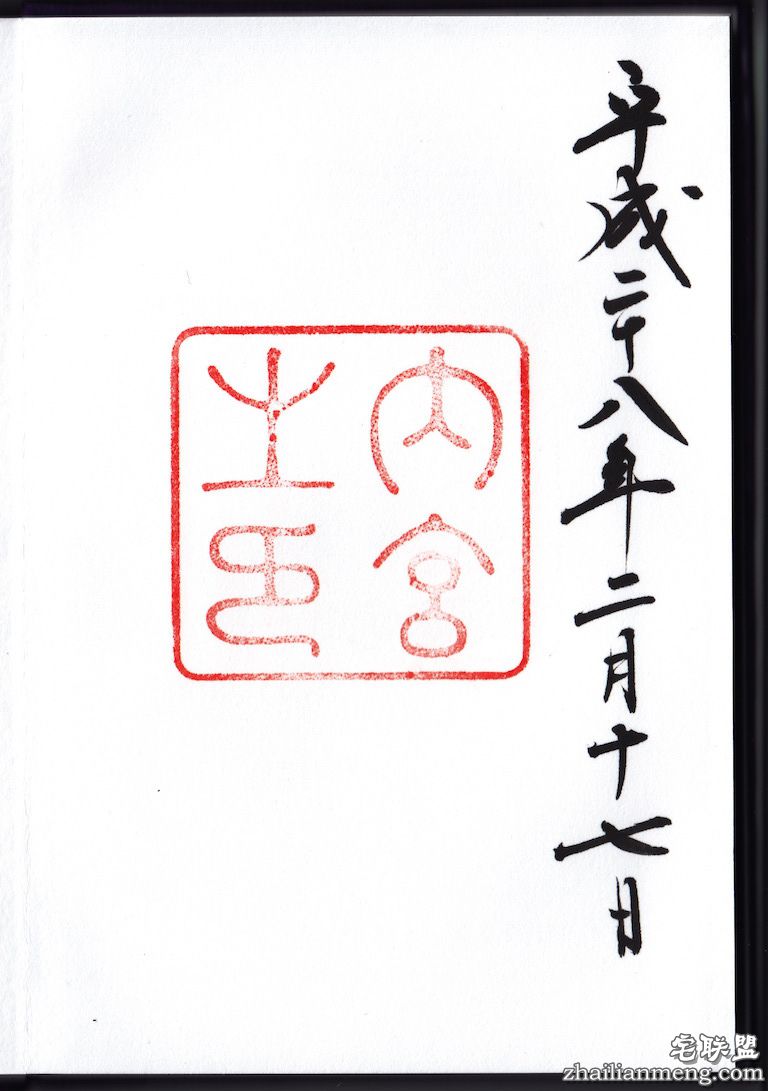 平成二十八年二月十七日
内宮
之印
宅联盟
zhailianmeng.com